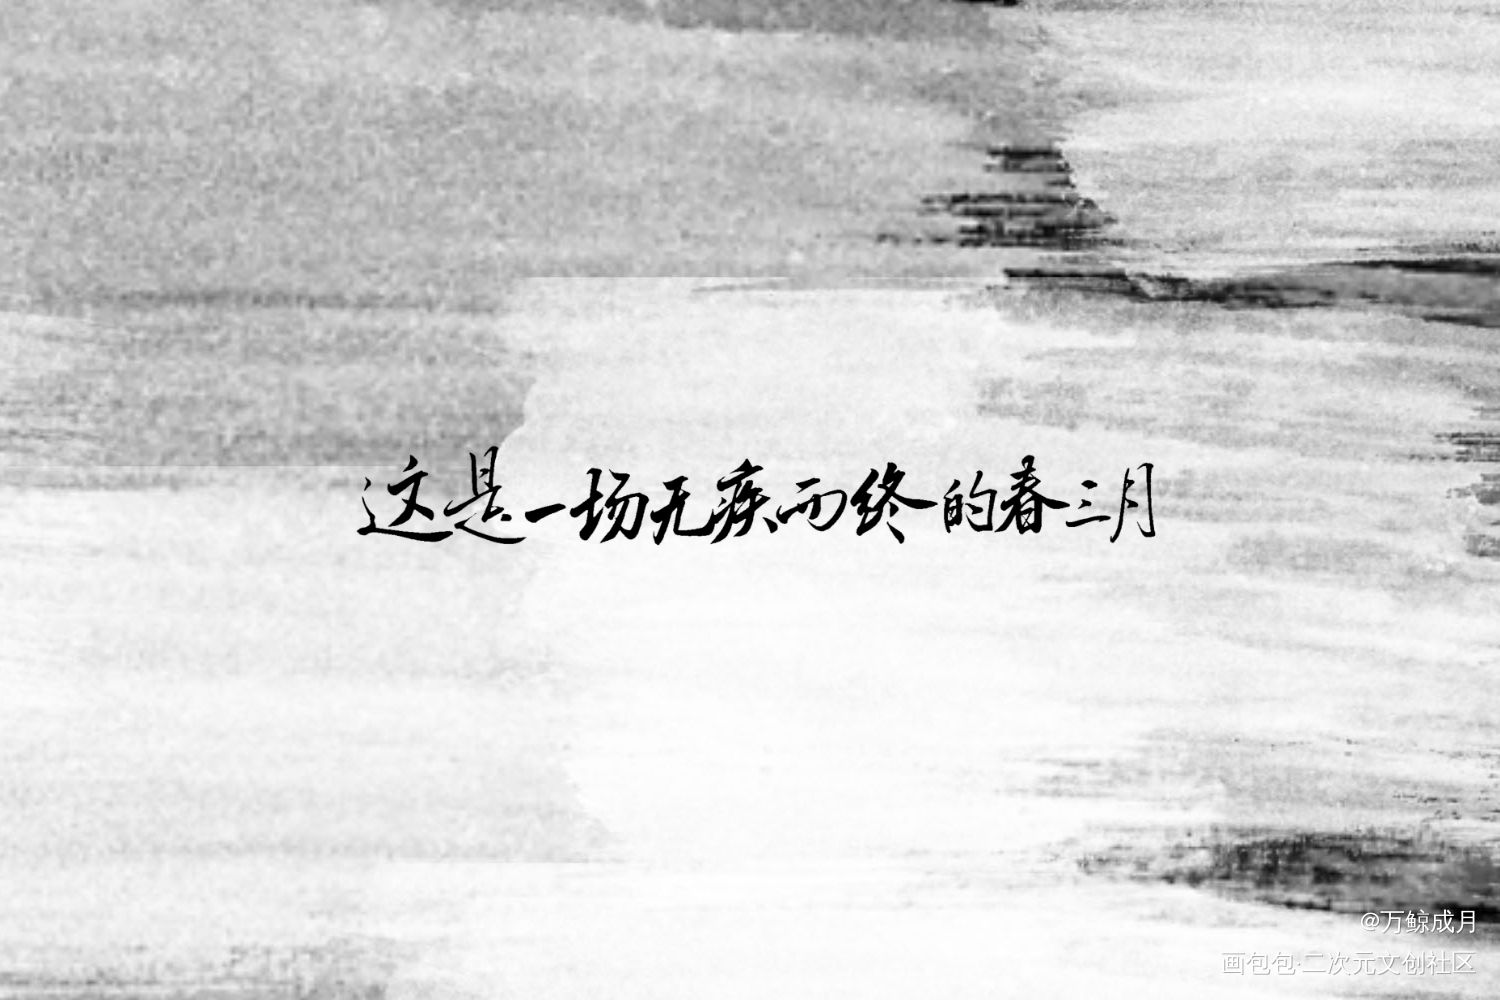 这是一场无疾而终的春三月
@万鲸成月
画包包·二次元文创社区